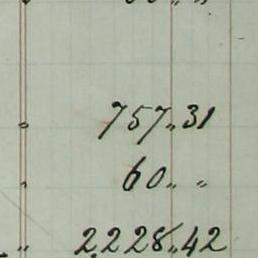 " 757 " 31
" 60 " "
" 2,228 " 42